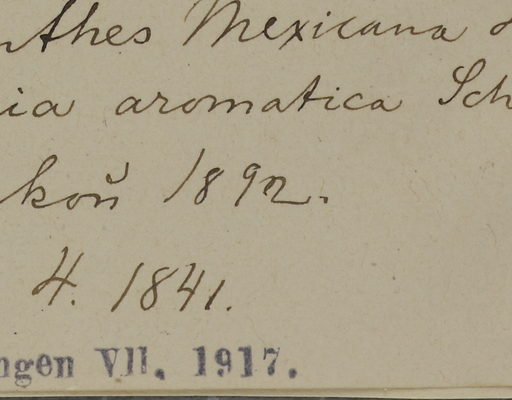 nthes Mexicana
ia aromatica Sch
koň 1892.
4. 1841.
ngen VII. 1917.